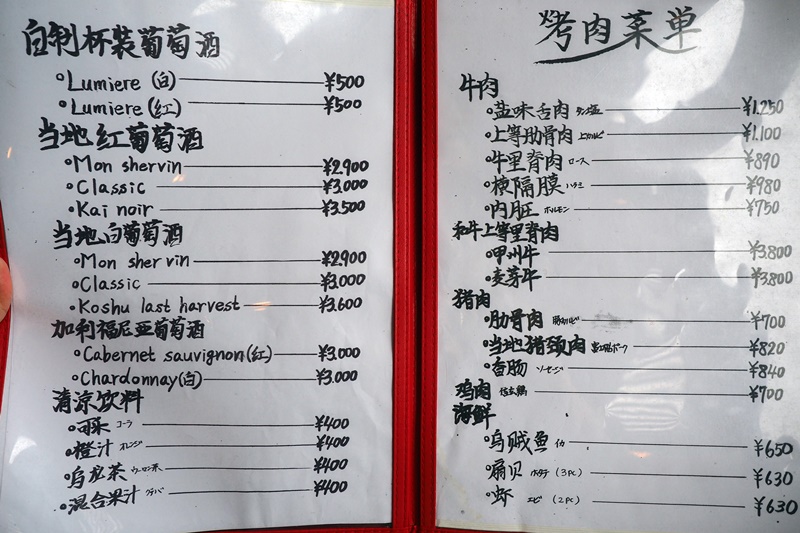 自制杯装葡萄酒
Lumiere (白) ¥500
Lumiere (红) ¥500
当地红葡萄酒
Mon shervin ¥2.900
Classic ¥3.000
Kai noir ¥3.500
当地白葡萄酒
Mon shervin ¥2.900
Classic ¥3.000
Koshu last harvest ¥3.600
加利福尼亚葡萄酒
Cabernet sauvignon (红) ¥3.000
Chardonnay (白) ¥3.000
清涼饮料
可乐 コーラ ¥400
橙汁 オレンジ ¥400
乌龙茶 ウーロン茶 ¥400
混合果汁 ¥400
烤肉菜单
牛肉
盐味舌肉 タン塩 ¥1.250
上等肋骨肉 上カルビ ¥1.100
牛里脊肉 ロース ¥890
横隔膜 ハラミ ¥980
内脏 ホルモン ¥750
和牛上等里脊肉
甲州牛 ¥3.800
麦芽牛 ¥3.800
猪肉
肋骨肉 ¥700
当地猪颈肉 ¥820
香肠 ソーセージ ¥840
鸡肉 ¥700
海鲜
乌贼鱼 イカ ¥650
扇贝 ホタテ (3pc) ¥630
虾 エビ (2pc) ¥630